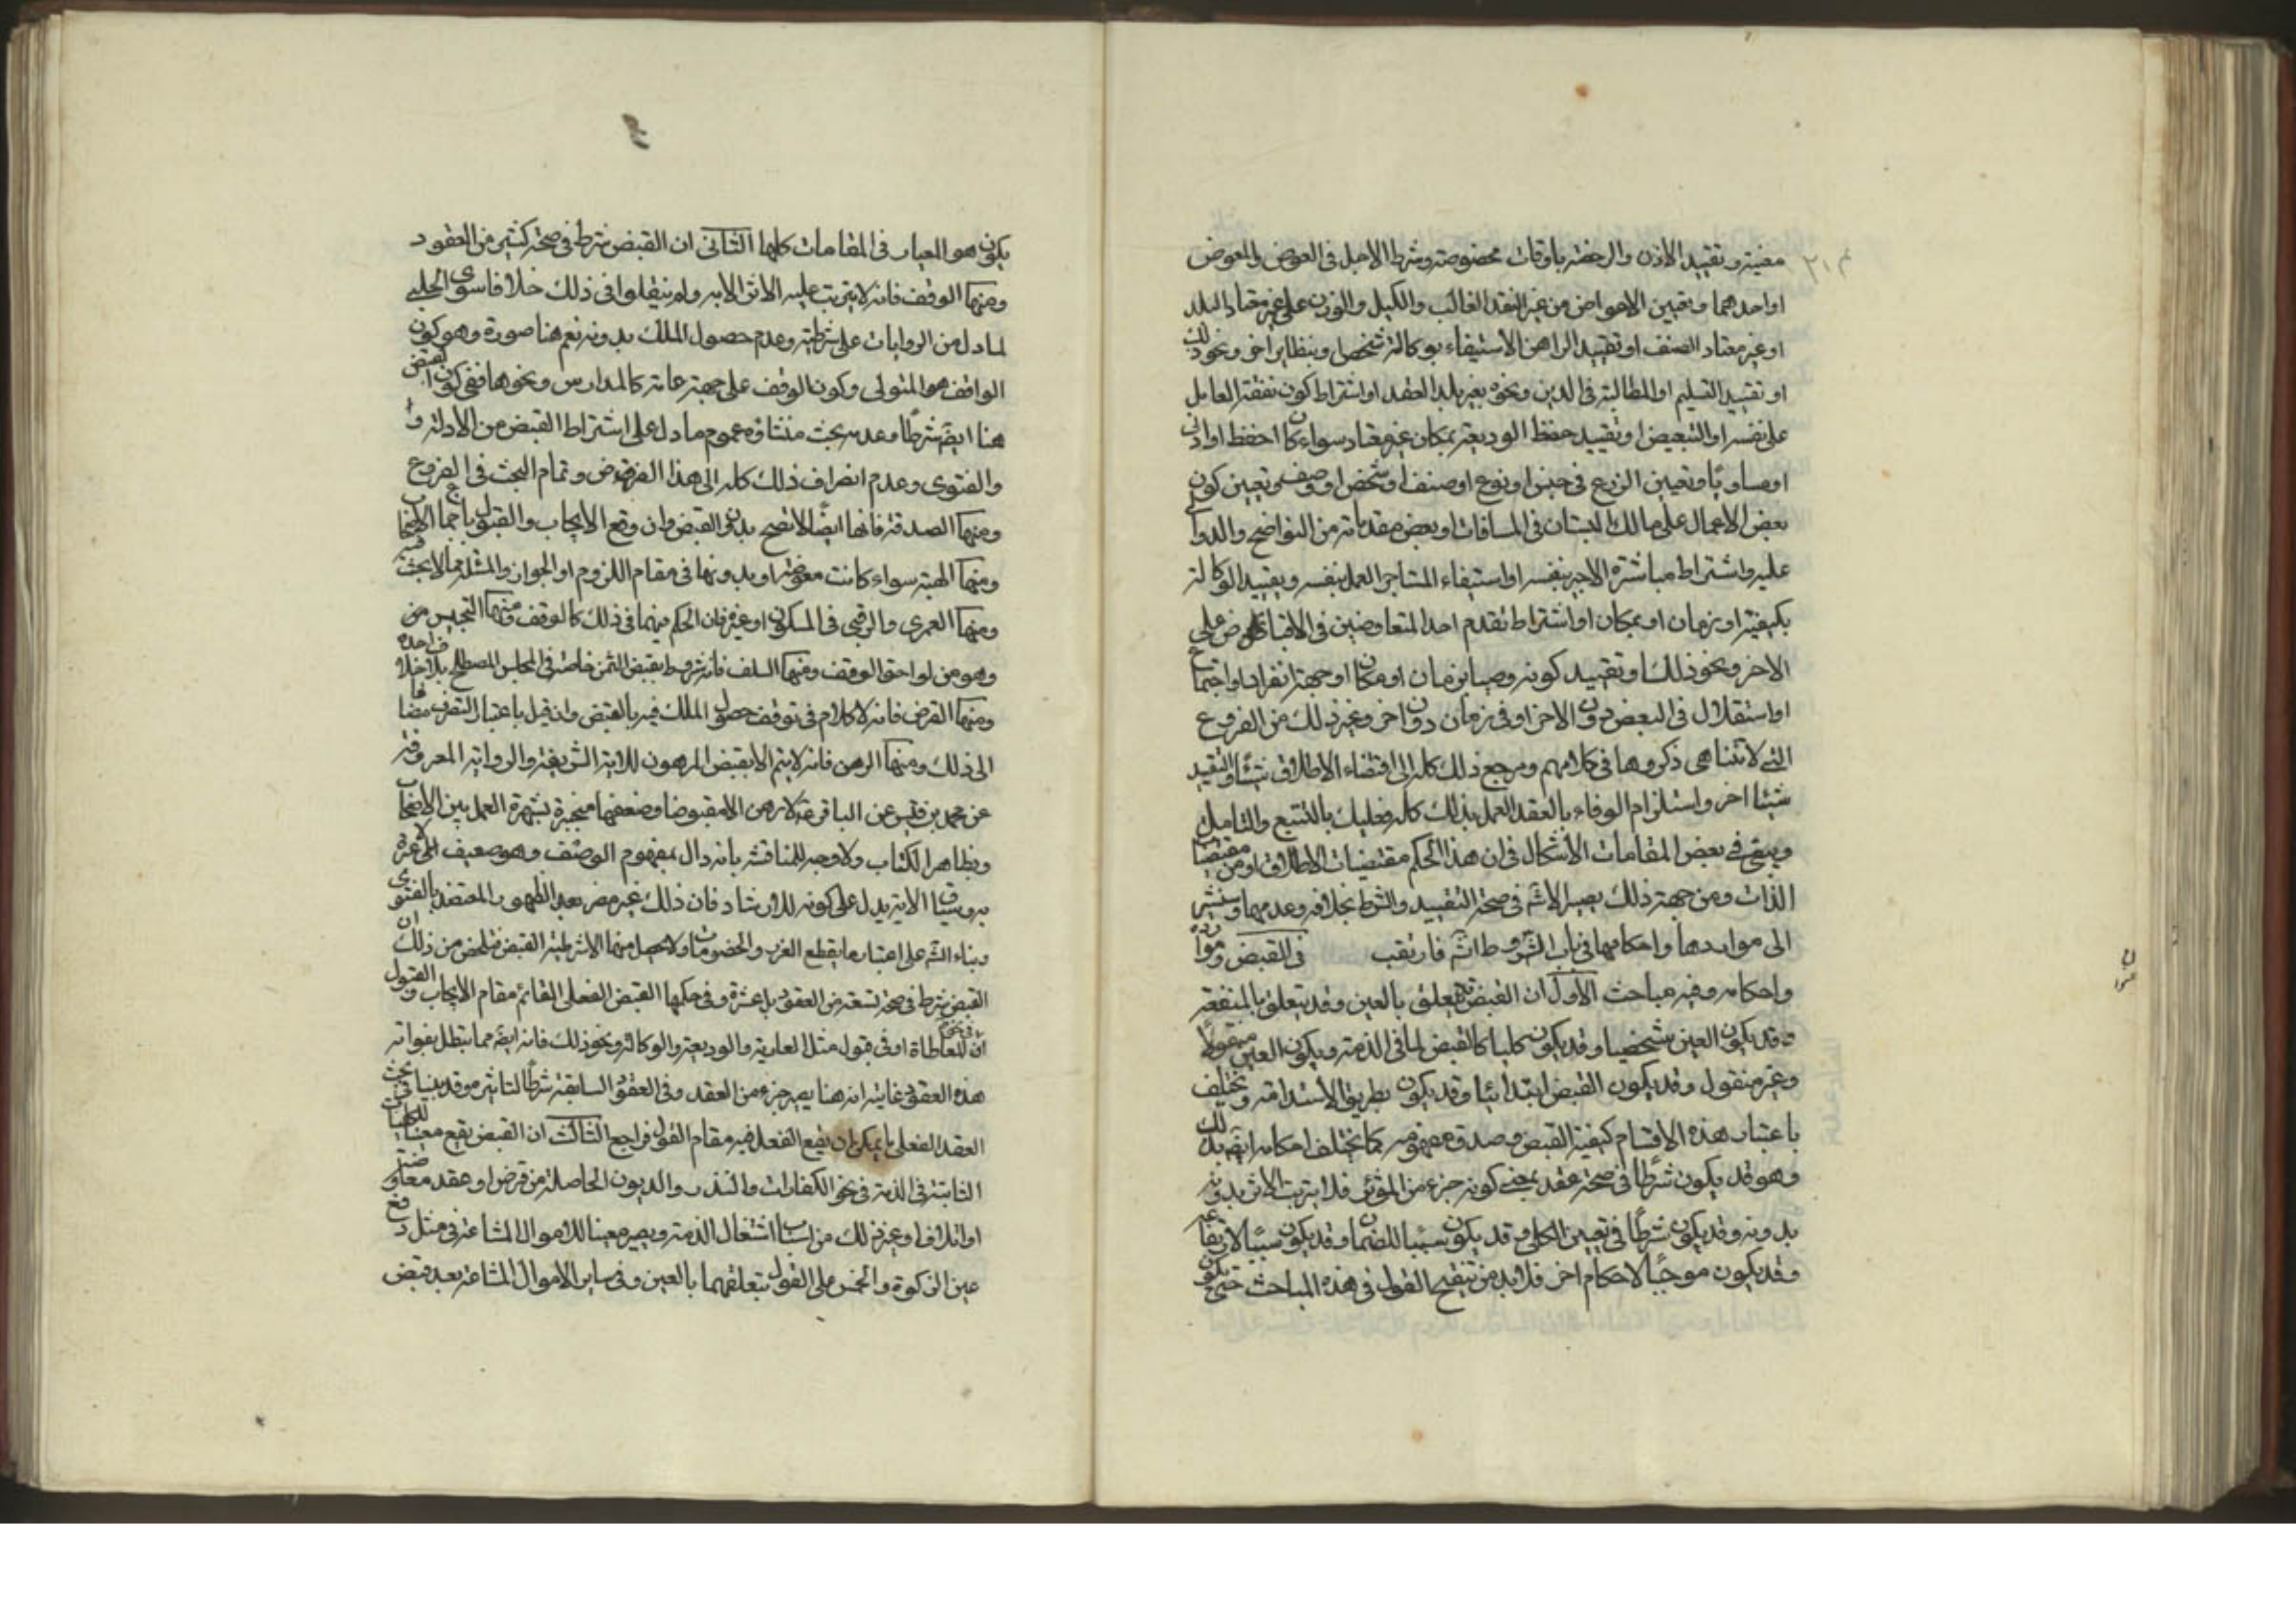 معينة وتقييد الاذن والرخصة باوقات مخصوصة وشرط الاجل في العوض والمعوض
او احدهما وتعيين الاعواض من غير النقد الغالب والكيل والوزن على غير معتاد البلد
او غير معتاد الصنف او تقييد الراهن الاستيفاء بوكالة شخص او بنظاير اخر ونحو ذلك
او تقييد التسليم او المطالبة في الدين ونحوه بغير بلد العقد او اشتراط كون نفقة العامل
على نفسه او التبعيض او تقييد حفظ الوديعة بمكان غير معتاد سواء كان احفظ او ادنى
او مساويا وتعيين الزرع في جنس او نوع او صنف او شخص او وصف وتعيين كون
بعض الاعمال على مالك البستان في المساقات او بعض مقدماته من النواضح والدوا
عليه واشتراط مباشرة الاجير بنفسه او استيفاء المستاجر العمل بنفسه وتقييد الوكالة
بكيفية او بزمان او بمكان او اشتراط تقدم احد المتعاوضين في الاقباض على
الاخر ونحو ذلك او تقييد كونه وصيا بزمان او مكان او جهة انفرادا واجتماع
او استقلال في البعض دون الاخر او في زمان دون اخر وغير ذلك من الفروع
التي لا تتناهى ذكروها في كلامهم ومرجع ذلك كله الى اقتضاء الاطلاق شيئا والتقييد
شيئا اخر واستلزام الوفاء بالعقد العمل بذلك كله فعليك بالتتبع والتامل
ويبقى في بعض المقامات الاشكال في ان هذا الحكم مقتضيات الاطلاق او من مقتضيات
الذات ومن جهة ذلك يصير الاشكال في صحة التقييد والشرط بخلافه وعدمهما وسنشير
الى مواردها واحكامها في باب الشروط انشاء فارتقب في القبض وموارده
واحكامه وفيه مباحث الاول ان القبض قد يتعلق بالعين وقد يتعلق بالمنفعة
وقد يكون العين شخصيا وقد يكون كليا كالقبض لما في الذمة ويكون العين منقولا
وغير منقول وقد يكون القبض ابتدائيا وقد يكون بطريق الاستدامة وتختلف
باعتبار هذه الاقسام كيفية القبض وصدق مفهومه كما تختلف احكامه ايضا بذلك
وهو قد يكون شرطا في صحة عقد بمعنى كونه جزء من المؤثر فلا يترتب الاثر بدونه
بدونه وقد يكون شرطا في تعيين الكلي وقد يكون سببا للضمان وقد يكون سببا لارتفاعه
وقد يكون موجبا لاحكام اخر فلابد من تنقيح القول في هذه المباحث حتى يكون
يكون هو المعيار في المقامات كلها الثاني ان القبض شرط في صحة كثير من العقود
ومنها الوقف فانه لا يترتب عليه الاثر الا به ولم ينقلوا في ذلك خلافا سوى الحلبي
لما دل من الروايات على شرطيته وعدم حصول الملك بدونه نعم هنا صورة وهو كون
الواقف هو المتولى وكون الوقف على جهة عامة كالمدارس ونحوها ففي كون القبض
هنا ايضا شرطا وعدمه بحث منشاؤه عموم ما دل على اشتراط القبض من الادلة
والفتوى وعدم انصراف ذلك كله الى هذا الفرض وتمام البحث في الفروع
ومنها الصدقة فانها ايضا لا تصح بدون القبض وان وقع الايجاب والقبول باجماع الاصحاب
ومنها الهبة سواء كانت معوضة او بدونها في مقام اللزوم او الجواز والمشاع مما لا بحث فيه
ومنها العمرى والرقبى في المسكون او غيره فان الحكم فيهما في ذلك كالوقف ومنها التحبيس
وهو من لواحق الوقف ومنها السلف فانه مشروط بقبض الثمن خاصة في المجلس المصطلح بلا خلاف اجده
ومنها القرض فانه لا كلام في توقف حصول الملك فيه بالقبض وان قيل باعتبار التصرف مضافا
الى ذلك ومنها الرهن فانه لا يتم الا بقبض المرهون للاية الشريفة والرواية المعروفة
عن محمد بن قيس عن الباقر ع لا رهن الا مقبوضا وضعفها منجبرة بشهرة العمل بين الاصحاب
وبظاهر الكتاب ولا وجه للمناقشة بانه دال بمفهوم الوصف وهو ضعيف
وسياق الاية يدل على كونه للارشاد فان ذلك غير مضر بعد الظهور المعتضد بالفتوى
وبناء الشرع على اعتبار ما يقطع الغرر والخصومات ولا يحصل منها الا شرطية القبض فتلخص من ذلك ان
القبض شرط في صحة تسعة من العقود بل عشرة وفي حكمها القبض الفعلي القائم مقام الايجاب والقبول
في نحو المعاطاة او في قبول مثل العارية والوديعة والوكالة ونحو ذلك فانه ايضا مما تبطل بفواته
هذه العقود غايته انه هنا يصير جزء من العقد وفي العقود السابقة شرطا لتاثيره وقد بينا في بحث
العقد الفعلي ما يمكن ان يقع الفعل فيه مقام القول فراجع الثالث ان القبض يقع معينا للكليات
الثابتة في الذمة في نحو الكفارات والنذر والديون الحاصلة من قرض او عقد معاوضة
او اتلاف او غير ذلك من اسباب اشتغال الذمة ويصير معينا للاموال المشاعة في مثل دفع
عين الزكوة والخمس على القول بتعلقهما بالعين وفي ساير الاموال المشاعة بعد قبض